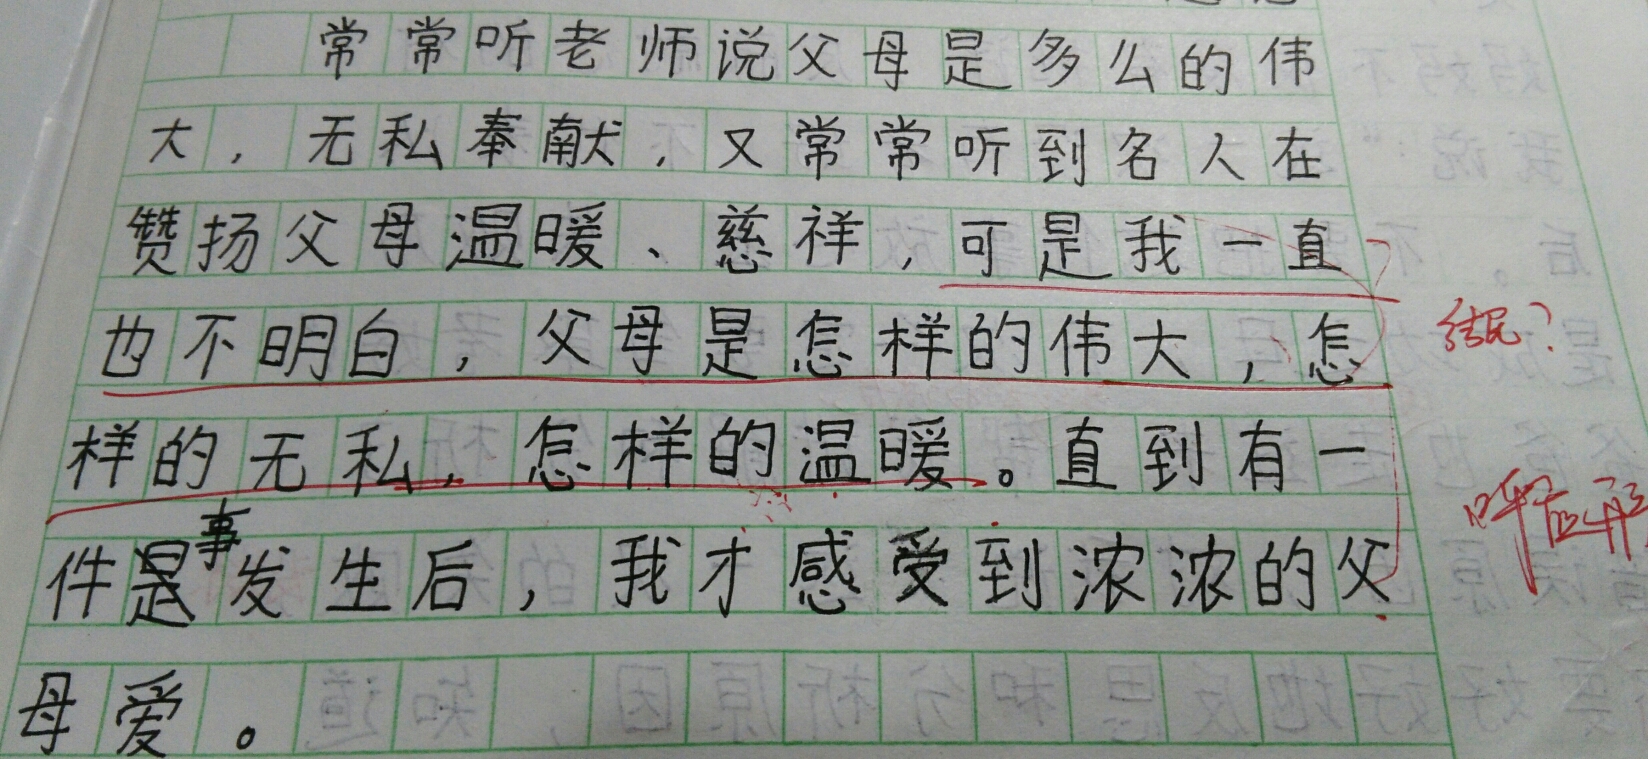 常常听老师说父母是多么的伟
大，无私奉献，又常常听到名人在
赞扬父母温暖、慈祥，可是我一直
也不明白，父母是怎样的伟大，怎
结尾？
样的无私，怎样的温暖。直到有一
呼应
件事发生后，我才感受到浓浓的父
母爱。